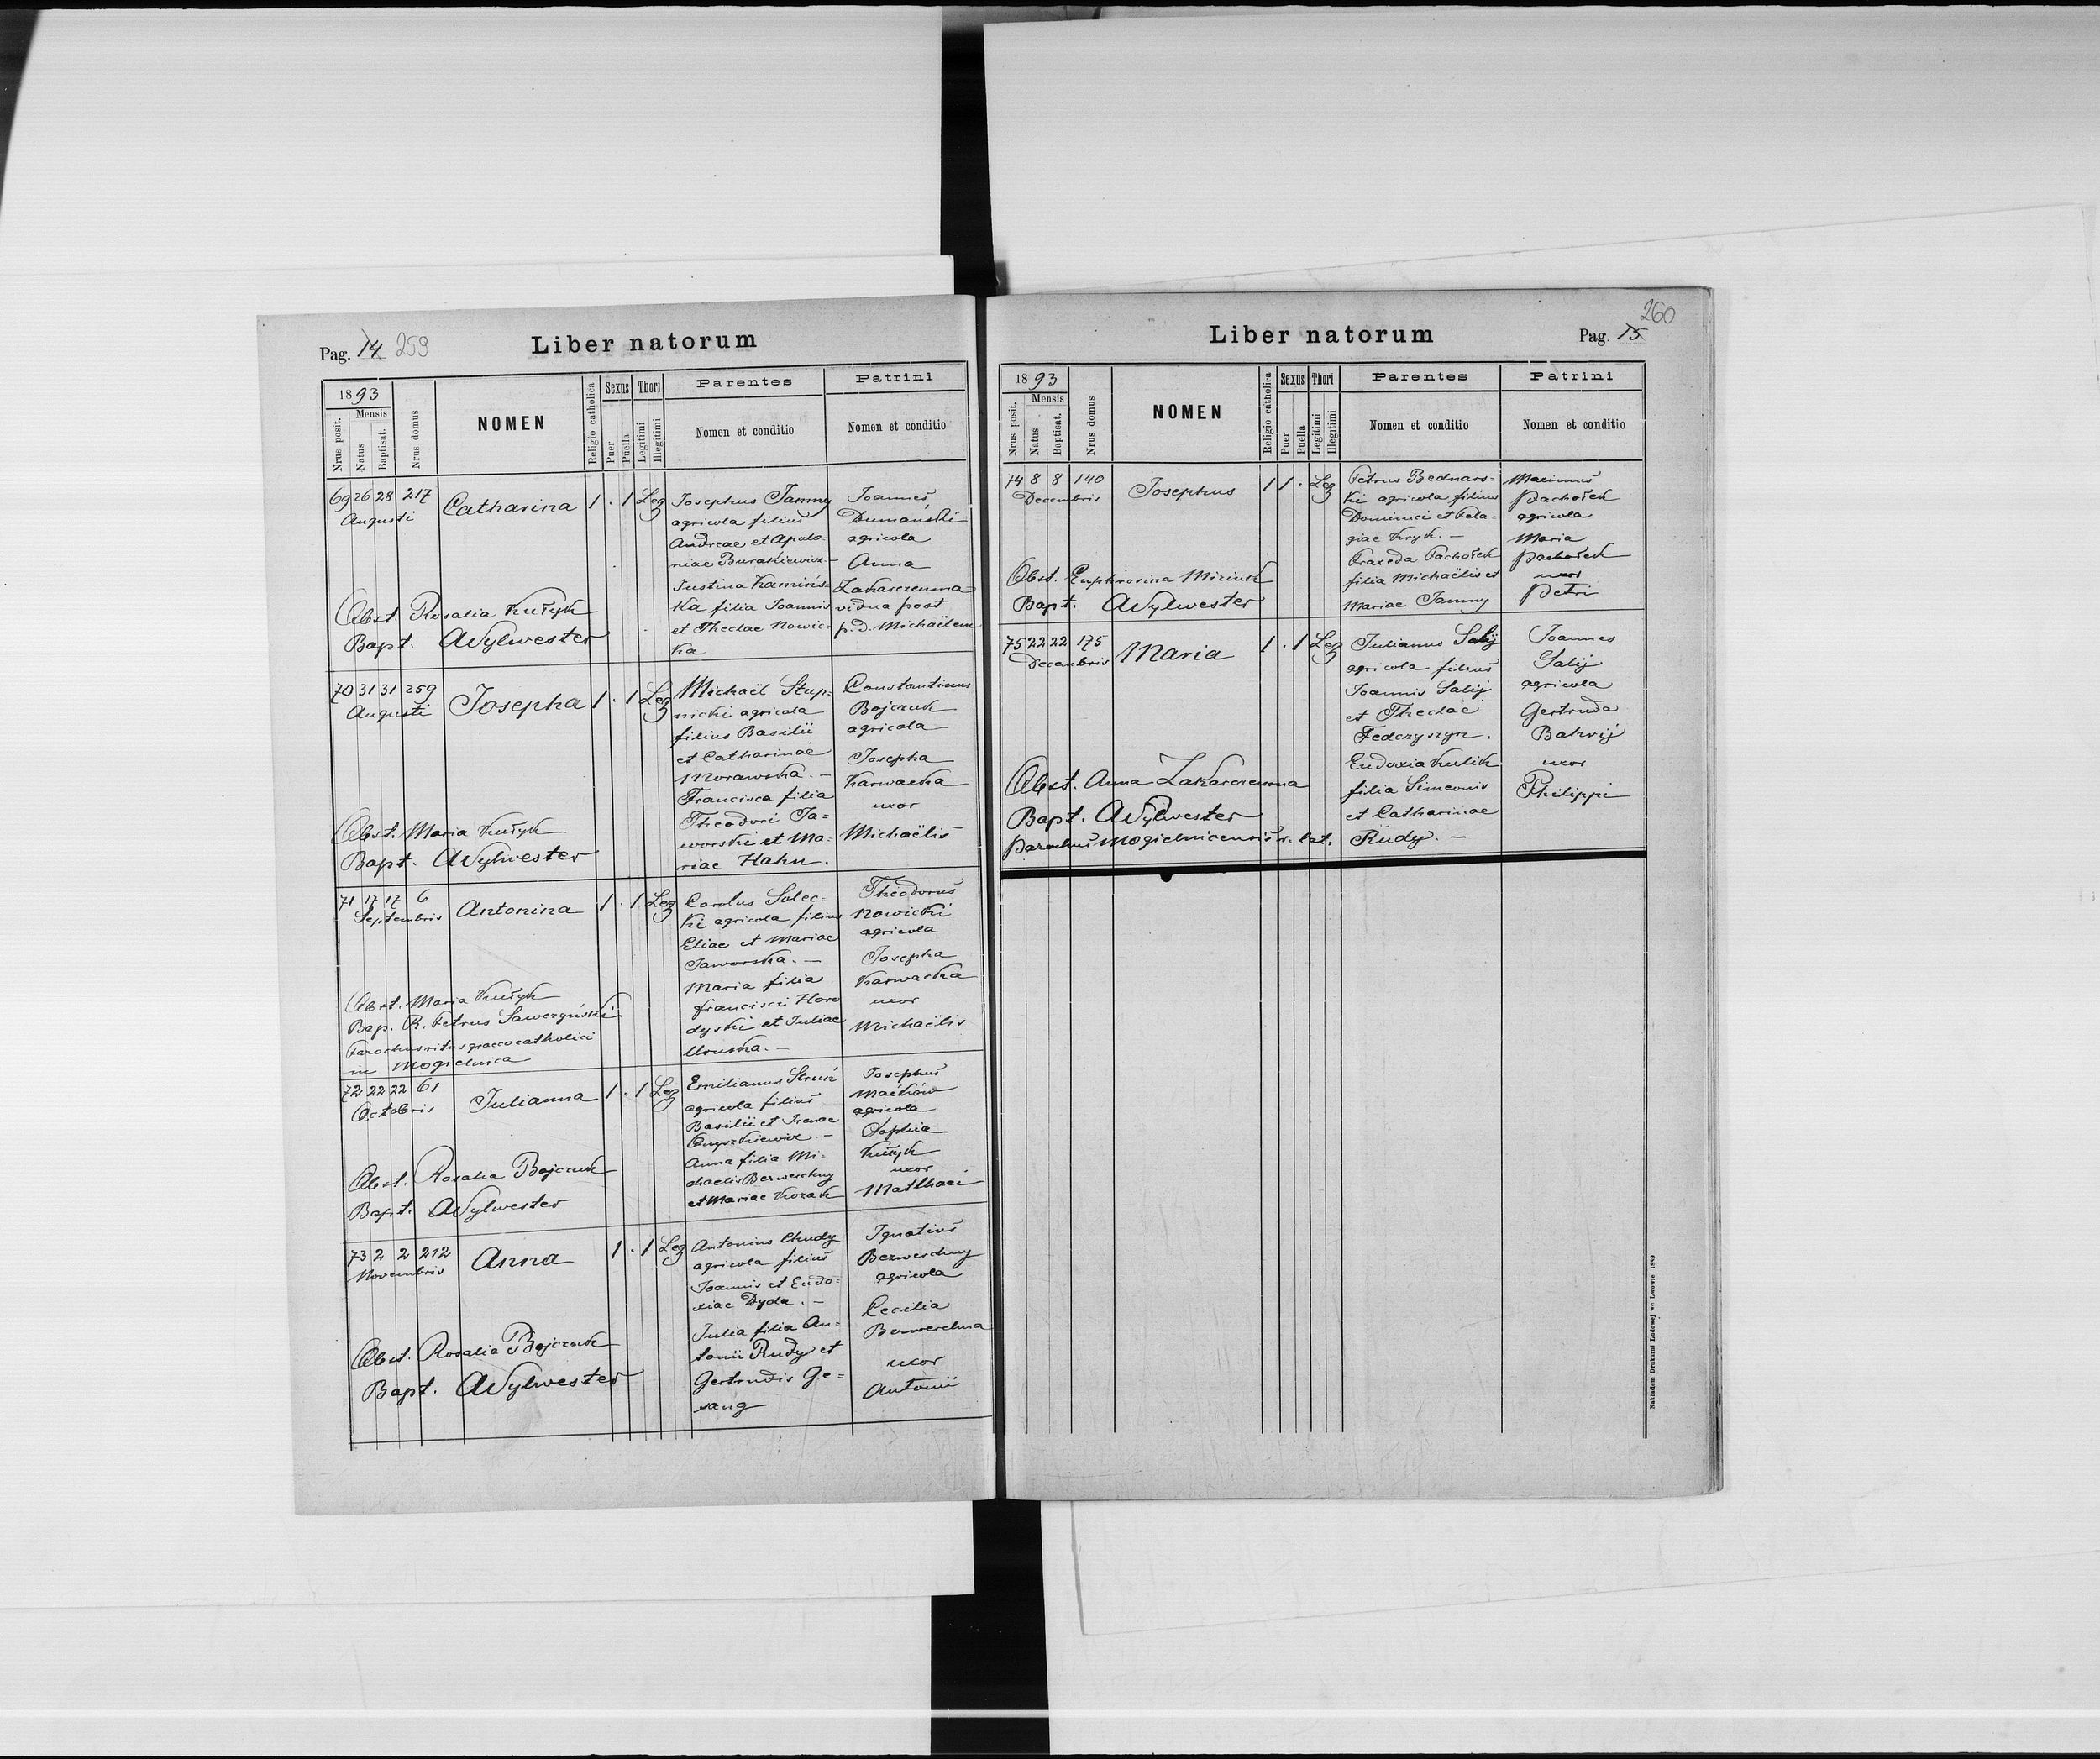 Pag. 14 259
Liber natorum
1893
Nrus posit.
Mensis
Natus
Baptisat.
Nrus domus
NOMEN
Religio catholica
Sexus
Puer
Puella
Thori
Legitimi
Illegitimi
Parentes
Nomen et conditio
Patrini
Nomen et conditio
69 26 28 217
Augusti
Catharina
1 . 1 Leg
Josephus Jamny
agricola filius
Andreae et Apolo=
niae Burakiewicz.—
Justina Kamińs=
ka filia Joannis
et Theclae Nowic=
ka
Joannes
Dumański
agricola
Anna
Zakarczemna
vidua post
p. d. Michaëlem
Obst. Rosalia Kuřyk
Bapt. AWylwester
70 31 31 259
Augusti
Josepha
1 . 1 Leg
Michaël Stup=
nicki agricola
filius Basilii
et Catharinae
Morawska. —
Francisca filia
Theodori Ja=
worski et Ma=
riae Hahn.
Constantinus
Bojczuk
agricola
Josepha
Karwacka
uxor
Michaëlis
Obst. Maria Kuřyk
Bapt. AWylwester
71 17 17 6
Septembris
Antonina
1 . 1 Leg
Carolus Solec=
ki agricola filius
Eliae et Mariae
Jaworska. —
Maria filia
Francisci Horo
dyski et Juliae
Theodorus
Nowicki
agricola
Josepha
Karwacka
uxor
Michaëlis
Obst. Maria Kuřyk
Bap. R. Petrus Sawczyński
Parochus ritus graeco catholici
in Mogielnica
72 22 22 61
Octobris
Julianna
1 . 1 Leg
Emilianus Struś
agricola filius
Basilii et Irenae
Onyszkiewicz. —
Anna filia Mi=
chaelis Berweschny
et Mariae Kozak
Josephus
Maćków
agricola
Sophia
Kuřyk
uxor
Matthaei
Obst. Rosalia Bojczuk
Bapt. AWylwester
73 2 2 212
Novembris
Anna
1 . 1 Leg
Antonius Chudy
agricola filius
Joannis et Eudo=
xiae Dyda. —
Julia filia An=
tonii Rudy et
Gertrudis Ge=
sang
Ignatius
Berweschny
agricola
Cecilia
uxor
Antonii
Obst. Rosalia Bojczuk
Bapt. AWylwester
260
Liber natorum
Pag. 15
1893
Nrus posit.
Mensis
Natus
Baptisat.
Nrus domus
NOMEN
Religio catholica
Sexus
Puer
Puella
Thori
Legitimi
Illegitimi
Parentes
Nomen et conditio
Patrini
Nomen et conditio
74 8 8 140
Decembris
Josephus
1 1 . Leg
Petrus Bednars=
ki agricola filius
Dominici et Pela=
giae Kryk. —
Praxeda Pachořek
filia Michaëlis et
Mariae Jamny
Maximus
Pachořek
agricola
Maria
Pachořek
uxor
Petri
Obst. Euphrosina Miziuk
Bapt. AWylwester
75 22 22 175
Decembris
Maria
1 . 1 Leg
Julianus Salij
agricola filius
Joannis Salij
et Theclae
Fedczyszyn.
Eudoxia Kulik
filia Simeonis
et Catharinae
Rudy. —
Joannes
Salij
agricola
Gertruda
Bakvij
uxor
Philippi
Obst. Anna Zakarczemna
Bapt. AWylwester
Parochus Mogielnicensis r. lat.
Nakładem Drukarni Ludowej we Lwowie 1889